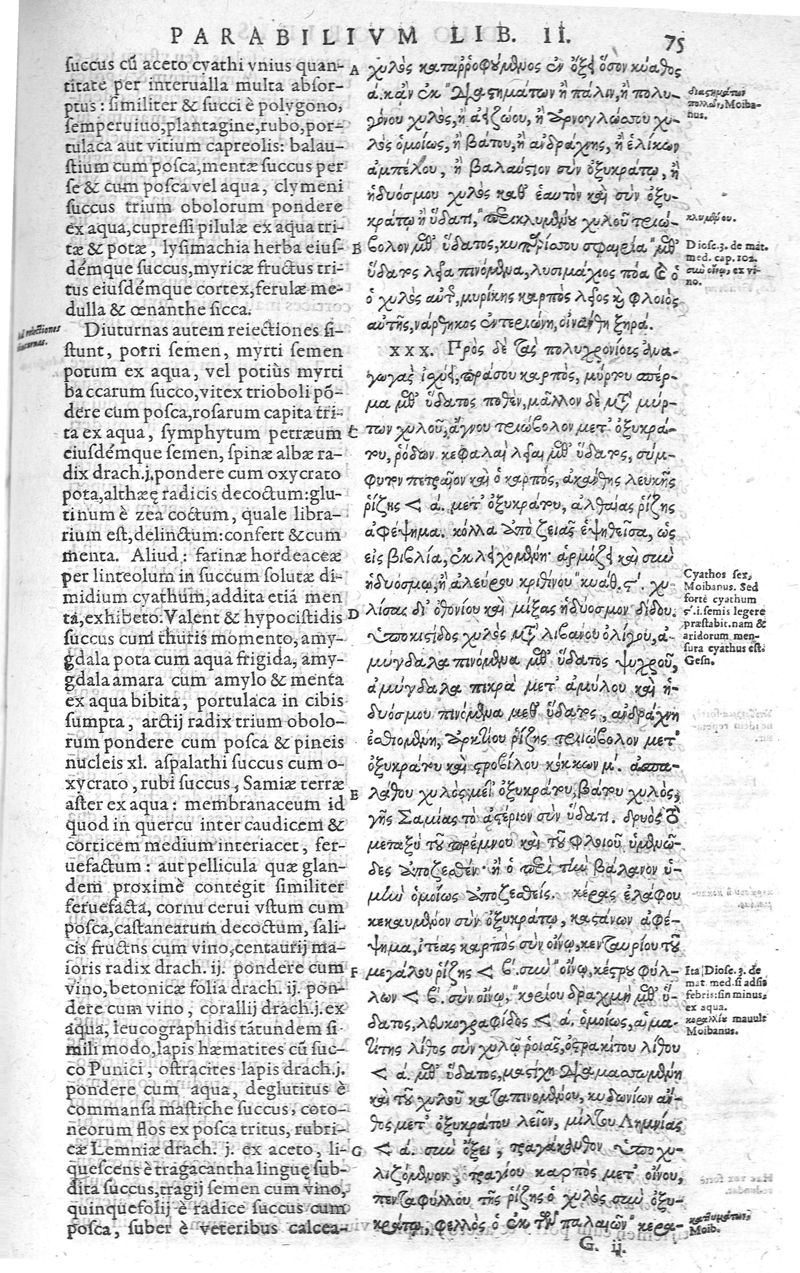 PARABILIVM LIB. II. 75
succus cũ aceto cyathi vnius quan-
titate per interualla multa absor-
ptus: similiter & succi è polygono,
semperuiuo, plantagine, rubo, por-
tulaca aut vitium capreolis: balau-
stium cum posca, mentæ succus per
se & cum posca vel aqua, clymeni
succus trium obolorum pondere
ex aqua, cupressi pilulæ ex aqua tri-
tæ & potæ, lysimachia herba eius-
démque succus, myricæ fructus tri-
tus eiusdémque cortex, ferulæ me-
dulla & œnanthe sicca.
Diuturnas autem reiectiones si-
stunt, porri semen, myrti semen
potum ex aqua, vel potiùs myrti
baccarum succo, vitex trioboli põ-
dere cum posca, rosarum capita tri-
ta ex aqua, symphytum petræum
eiusdémque semen, spinæ albæ ra-
dix drach. j. pondere cum oxycrato
pota, althæę radicis decoctum: glu-
tinum è zea coctum, quale libra-
rium est, delinctum: confert & cum
menta. Aliud: farinæ hordeaceæ
per linteolum in succum solutæ di-
midium cyathum, addita etiã men
ta, exhibeto: Valent & hypocistidis
succus cum thuris momento, amy-
gdala pota cum aqua frigida, amy-
gdala amara cum amylo & menta
ex aqua bibita, portulaca in cibis
sumpta, arctij radix trium obolo-
rum pondere cum posca & pineis
nucleis xl. aspalathi succus cum o-
xycrato, rubi succus, Samiæ terræ
aster ex aqua: membranaceum id
quod in quercu inter caudicem &
corticem medium interiacet, fer-
uefactum: aut pellicula quæ glan-
dem proximè contegit similiter
feruefacta, cornu cerui vstum cum
posca, castanearum decoctum, sali-
cis fructus cum vino, centaurij ma-
ioris radix drach. ij. pondere cum
vino, betonicæ folia drach. ij. pon-
dere cum vino, corallij drach. j. ex
aqua, leucographidis tãtundem si-
mili modo, lapis hæmatites cũ suc-
co Punici, ostracites lapis drach. j.
pondere cum aqua, deglutitus è
commansa mastiche succus, coto-
neorum flos ex posca tritus, rubri-
cæ Lemniæ drach. j. ex aceto, li-
quescens è tragacantha linguę sub-
dita succus, tragij semen cum vino,
quinquefolij è radice succus cum
posca, suber è veteribus calcea-
ad reiectiones
diuturnas.
A
B
C
D
E
F
G
χυλὸς καταῤῥοφούμενος ἐν ὄξει ὅσον κύαθος
ά. κἂν ἐκ διαστημάτων ἢ πάλιν, ἢ πολυ-
γόνου χυλὸς, ἢ ἀειζώου, ἢ ἀρνογλώσσου χυ-
λὸς ὁμοίως, ἢ βάτου, ἢ ἀνδράχνης, ἢ ἑλίκων
ἀμπέλου, ἢ βαλαύστιον σὺν ὀξυκράτῳ, ἢ
ἡδυόσμου χυλὸς καθ' ἑαυτὸν καὶ σὺν ὀξυ-
κράτῳ ἢ ὕδατι, περικλυμένου χυλοῦ τριώ-
βολον μεθ' ὕδατος, κυπαρίσσου σφαιρία μεθ'
ὕδατος λεῖα πινόμενα, λυσιμάχιος πόα καὶ ὁ
ὁ χυλὸς αὐτῆς, μυρίκης καρπὸς λεῖος καὶ φλοιὸς
αὐτῆς, νάρθηκος ἐντεριώνη, οἰνάνθη ξηρά.
ΧΧΧ. Πρὸς δὲ τὰς πολυχρονίους ἀνα-
γωγὰς ἰσχύει, πράσου καρπὸς, μύρτου σπέρ-
μα μεθ' ὕδατος ποθὲν, μᾶλλον δὲ μετὰ μύρ-
των χυλοῦ, ἄγνου τριώβολον μετ' ὀξυκρά-
του, ῥόδων κεφαλαὶ λεῖαι μεθ' ὕδατος, σύμ-
φυτον πετραῖον καὶ ὁ καρπὸς, ἀκάνθης λευκῆς
ῥίζης < ά. μετ' ὀξυκράτου, ἀλθαίας ῥίζης
ἀφέψημα. κόλλα ἀπὸ ζειᾶς ἑψηθεῖσα, ὡς
εἰς βιβλία, ἐκλειχομένη· ἁρμόζει καὶ σὺν
ἡδυόσμῳ, ἢ ἀλεύρου κριθίνου κυάθ. ϛ'. χυ-
λίσας δι' ὀθονίου καὶ μίξας ἡδύοσμον δίδου.
ὑποκιστίδος χυλὸς μετὰ λιβάνου ὀλίγου, ἀ-
μύγδαλα πινόμενα μεθ' ὕδατος ψυχροῦ,
ἀμύγδαλα πικρὰ μετ' ἀμύλου καὶ ἡ-
δυόσμου πινόμενα μεθ' ὕδατος, ἀνδράχνη
ἐσθιομένη, ἀρκτίου ῥίζης τριώβολον μετ'
ὀξυκράτου καὶ στροβίλου κόκκων μ'. ἀσπα-
λάθου χυλὸς μετ' ὀξυκράτου, βάτου χυλὸς,
γῆς Σαμίας τὸ ἀστέριον σὺν ὕδατι. δρυὸς τὸ
μεταξὺ τοῦ πρέμνου καὶ τοῦ φλοιοῦ ὑμενῶ-
δες ἀποζεσθέν· ἢ ὁ περὶ τὴν βάλανον ὑ-
μὴν ὁμοίως ἀποζεσθείς. κέρας ἐλάφου
κεκαυμένον σὺν ὀξυκράτῳ, καστάνων ἀφέ-
ψημα, ἰτέας καρπὸς σὺν οἴνῳ, κενταυρίου τοῦ
μεγάλου ῥίζης < β'. σὺν οἴνῳ, κέστρου φύλ-
λων < β'. σὺν οἴνῳ, κορίου δραχμὴ μεθ' ὕ-
δατος, λευκογραφίδος < ά. ὁμοίως, αἱμα-
τίτης λίθος σὺν χυλῷ ῥοιᾶς, ὀστρακίτου λίθου
< ά. μεθ' ὕδατος, μαστίχη διαμασωμένη
καὶ τοῦ χυλοῦ καταπινομένου, κυδωνίων ἄν-
θος μετ' ὀξυκράτου λεῖον, μίλτου Λημνίας
< ά. σὺν ὄξει, τραγάκανθον ὑποχυ-
λιζόμενον, τραγίου καρπὸς μετ' οἴνου,
πενταφύλλου τῆς ῥίζης ὁ χυλὸς σὺν ὀξυ-
κράτῳ, φελλὸς ὁ ἐκ τῶν παλαιῶν
G. ij.
διαστημάτων
πολλῶν, Moiba-
nus.
κλυμένου.
Diosc. 3. de mat.
med. cap. 102.
σὺν οἴνῳ, ex vi-
no.
Cyathos sex,
Moibanus. Sed
fortè cyathum
ϛ'. i. semis legere
præstabit. nam &
aridorum men-
sura cyathus est.
Gesn.
Ita Diosc. 3. de
mat. med. si adsit
febris: sin minus,
ex aqua.
κοραλλίου mauult
Moibanus.
Moib.